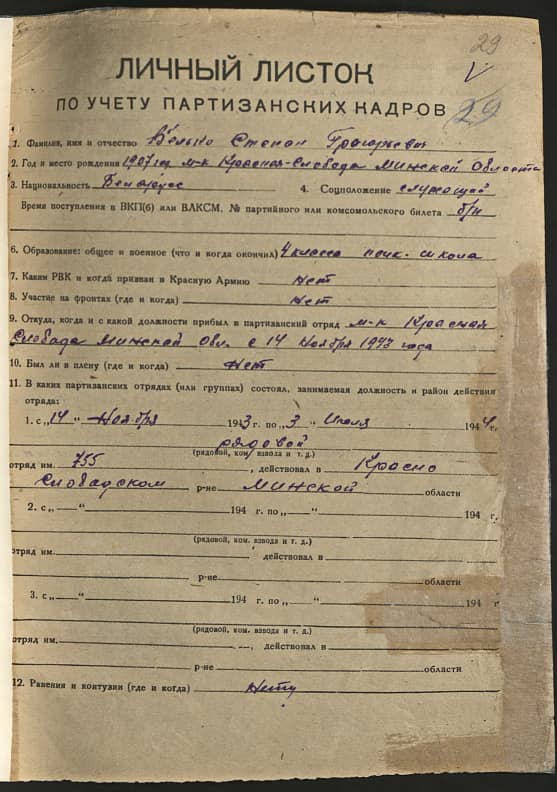 29
29
ЛИЧНЫЙ ЛИСТОК
ПО УЧЕТУ ПАРТИЗАНСКИХ КАДРОВ
1. Фамилия, имя и отчество Велько Степан Григорьевич
2. Год и место рождения 1907 год м-к Красная-Слобода Минской Области
3. Национальность Белорус 4. Соцположение служащий
Время поступления в ВКП(б) или ВЛКСМ, № партийного или комсомольского билета б/п
6. Образование: общее и военное (что и когда окончил) 4 класса школа
7. Каким РВК и когда призван в Красную Армию нет
8. Участие на фронтах (где и когда) нет
9. Откуда, когда и с какой должности прибыл в партизанский отряд м-к Красная
Слобода Минской Обл. с 14 Ноября 1943 года
10. Был ли в плену (где и когда) нет
11. В каких партизанских отрядах (или группах) состоял, занимаемая должность и район действия
отряда:
1. с „14" Ноября 1943 г. по „3" Июля 1944 г.
рядовой
(рядовой, ком. взвода и т. д.)
отряд им. 755, действовал в Красно
Слободском р-не Минской области
2. с „ " 194 г. по „ " 194 г.
(рядовой, ком. взвода и т. д.)
отряд им. действовал в
р-не области
3. с „ " 194 г. по „ " 194 г
(рядовой, ком. взвода и т. д.)
отряд им. , действовал в
р-не области
12. Ранения и контузии (где и когда) нету